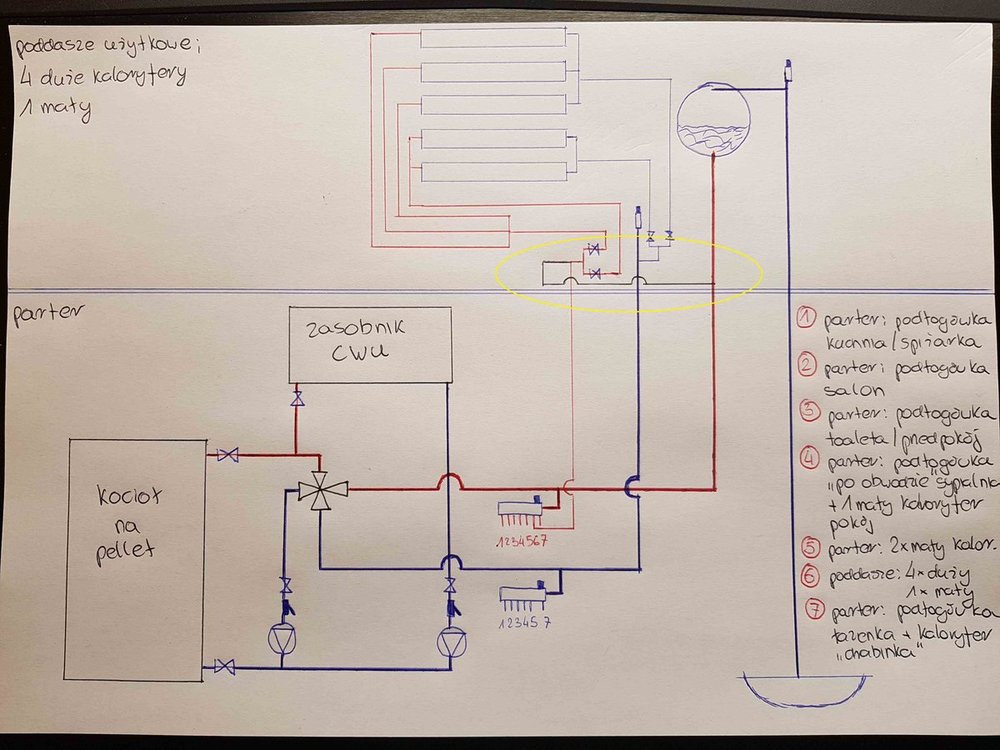 poddasze użytkowe:
4 duże kaloryfery
1 mały
parter
zasobnik
CWU
kocioł
na
pellet
1234567
12345.7
① parter: podłogówka
kuchnia/spiżarka
② parter: podłogówka
salon
③ parter: podłogówka
toaleta/przedpokój
④ parter: podłogówka
„po obwodzie" sypialnia
+ 1 mały kaloryfer
pokój
⑤ parter: 2×mały kalor.
⑥ poddasze: 4×duży
1×mały
⑦ parter: podłogówka
łazienka + kaloryfer
„drabinka"